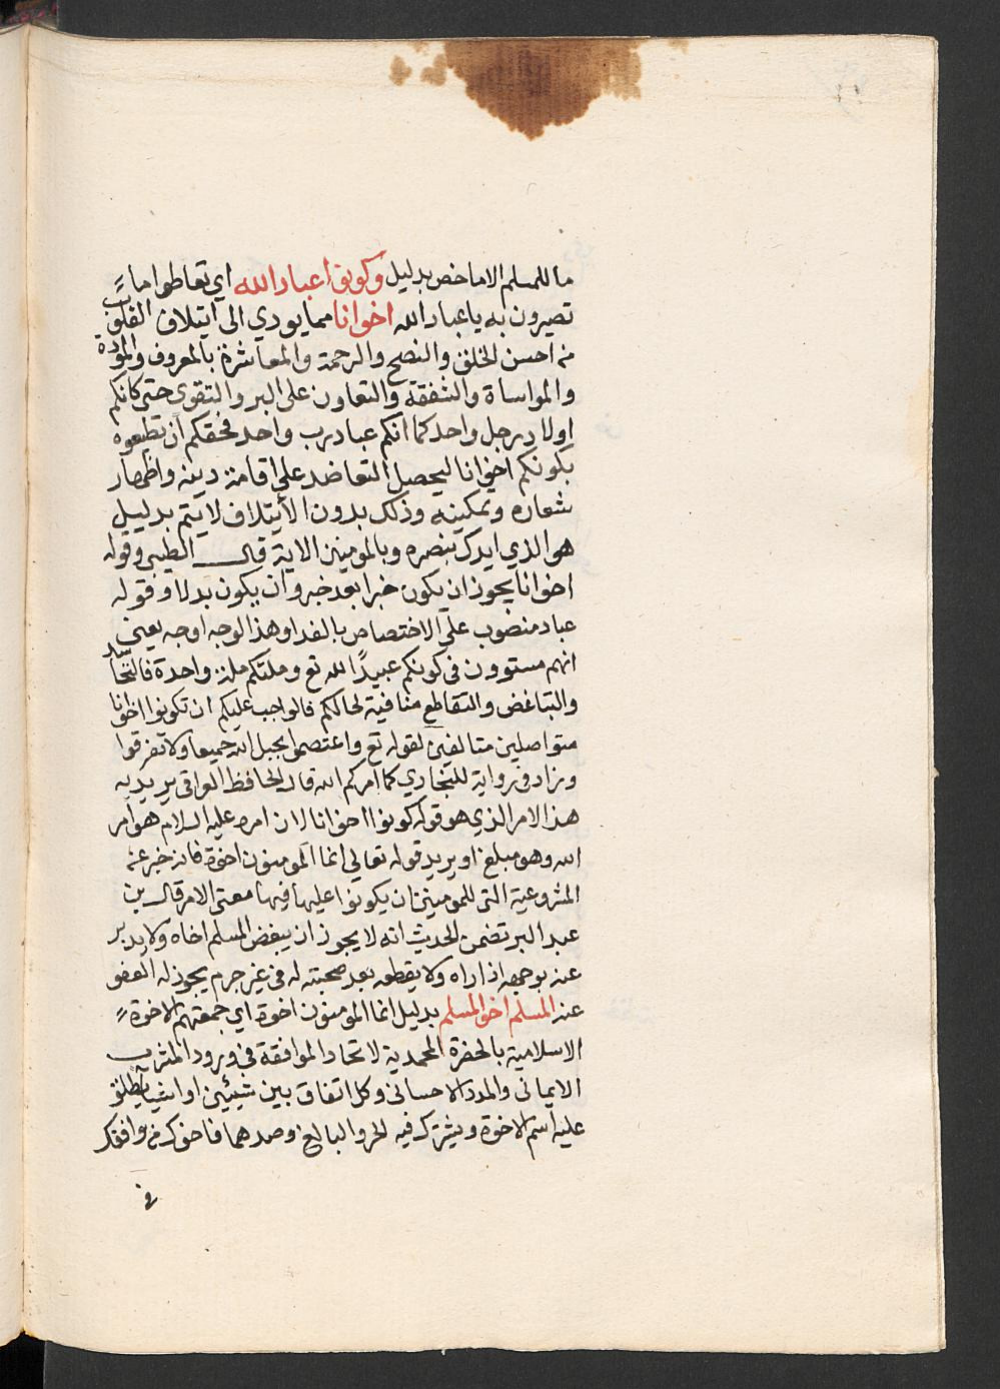 ما للمسلم الا ما خص بدليل وكونوا عباد الله اي تعاطوا ما
تصيرون به يا عباد الله اخوانا مما يودي الى ايتلاف القلوب
من احسن الخلق والنصح والرحمة والمعاشرة بالمعروف والمودة
والمواساة والشفقة والتعاون على البر والتقوى حتى كانكم
اولاد رجل واحد كما انكم عباد رب واحد فحقكم ان تطيعوه
بكونكم اخوانا ليحصل التعاضد على اقامة دينه واظهار
شعاره وتمكينه وذلك بدون الايتلاف لا يتم بدليل
هو الذي ايدك بنصره وبالمومنين الاية قال الطيبي وقوله
اخوانا يجوز ان يكون خبرا بعد خبر وان يكون بدلا وقوله
عباد منصوب على الاختصاص بالندا وهذا الوجه اوجه يعني
انهم مستوون في كونكم عبيدا لله تع وملتكم ملة واحدة فالتحاسد
والتباغض والتقاطع منافية لحالكم فالواجب عليكم ان تكونوا اخوانا
متواصلين متالفين لقوله تع واعتصموا بحبل الله جميعا ولا تفرقوا
وزاد في رواية للبخاري كما امركم الله قال الحافظ العراقي يريد به
هذا الامر الذي هو قوله كونوا اخوانا لان امره عليه السلام هو امر
الله وهو مبلغ او يريد قوله تعالى انما المومنون اخوة فانه خبر عن
المشروعية التي للمومنين ان يكونوا عليها فيها معنى الامر قال بن
عبد البر تضمن الحديث انه لا يجوز ان يبغض المسلم اخاه ولا يدبر
عنه بوجهه اذا راه ولا يقطعه بعد صحبته له في غير جرم يجوز له العفو
عنه المسلم اخو المسلم بدليل انما المومنون اخوة اي جمعتهم الاخوة
الاسلامية بالحضرة المحمدية لاتحاد الموافقة في ورود المشرب
الايماني والمدد الاحساني وكل اتفاق بين شيئين او اشيا يطلق
عليه اسم الاخوة ويشترك فيه الحر والبالغ وضدهما فاخوك من وافقك
في